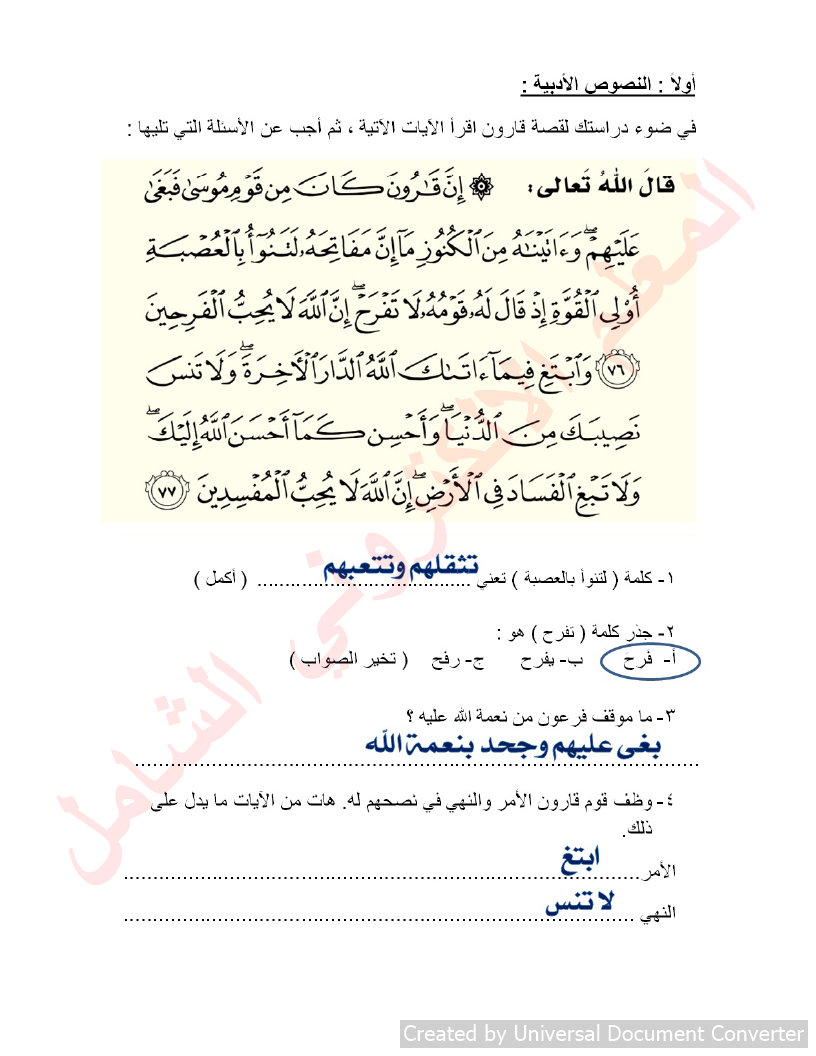 أولاً : النصوص الأدبية :
في ضوء دراستك لقصة قارون اقرأ الآيات الآتية ، ثم أجب عن الأسئلة التي تليها :
قالَ اللهُ تَعالى: ۞ إِنَّ قَٰرُونَ كَانَ مِن قَوۡمِ مُوسَىٰ فَبَغَىٰ
عَلَيۡهِمۡۖ وَءَاتَيۡنَٰهُ مِنَ ٱلۡكُنُوزِ مَآ إِنَّ مَفَاتِحَهُۥ لَتَنُوٓأُ بِٱلۡعُصۡبَةِ
أُوْلِي ٱلۡقُوَّةِ إِذۡ قَالَ لَهُۥ قَوۡمُهُۥ لَا تَفۡرَحۡۖ إِنَّ ٱللَّهَ لَا يُحِبُّ ٱلۡفَرِحِينَ
٧٦ وَٱبۡتَغِ فِيمَآ ءَاتَىٰكَ ٱللَّهُ ٱلدَّارَ ٱلۡأٓخِرَةَۖ وَلَا تَنسَ
نَصِيبَكَ مِنَ ٱلدُّنۡيَاۖ وَأَحۡسِن كَمَآ أَحۡسَنَ ٱللَّهُ إِلَيۡكَۖ
وَلَا تَبۡغِ ٱلۡفَسَادَ فِي ٱلۡأَرۡضِۖ إِنَّ ٱللَّهَ لَا يُحِبُّ ٱلۡمُفۡسِدِينَ ٧٧
١- كلمة ( لتنوأ بالعصبة ) تعني تثقلهم وتتعبهم ( أكمل )
٢- جذر كلمة ( تفرح ) هو :
أ- فرح ب- يفرح ج- رفح ( تخير الصواب )
٣- ما موقف فرعون من نعمة الله عليه ؟
بغى عليهم وجحد بنعمة الله
٤- وظف قوم قارون الأمر والنهي في نصحهم له. هات من الآيات ما يدل على
ذلك.
الأمر ابتغ
النهي لا تنس
المعلم الالكتروني الشامل
Created by Universal Document Converter